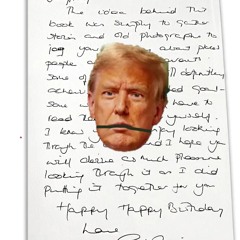 The idea behind this
book was simply to gather
stories and old photographs to
jog your about places
people and events.
Some of will definitely
achieve goal -
some have to
read the yourself.
I know you enjoy looking
through the and I hope you
will derive as much pleasure
looking through it as I did
putting it together for you
Happy Happy Birthday
Love